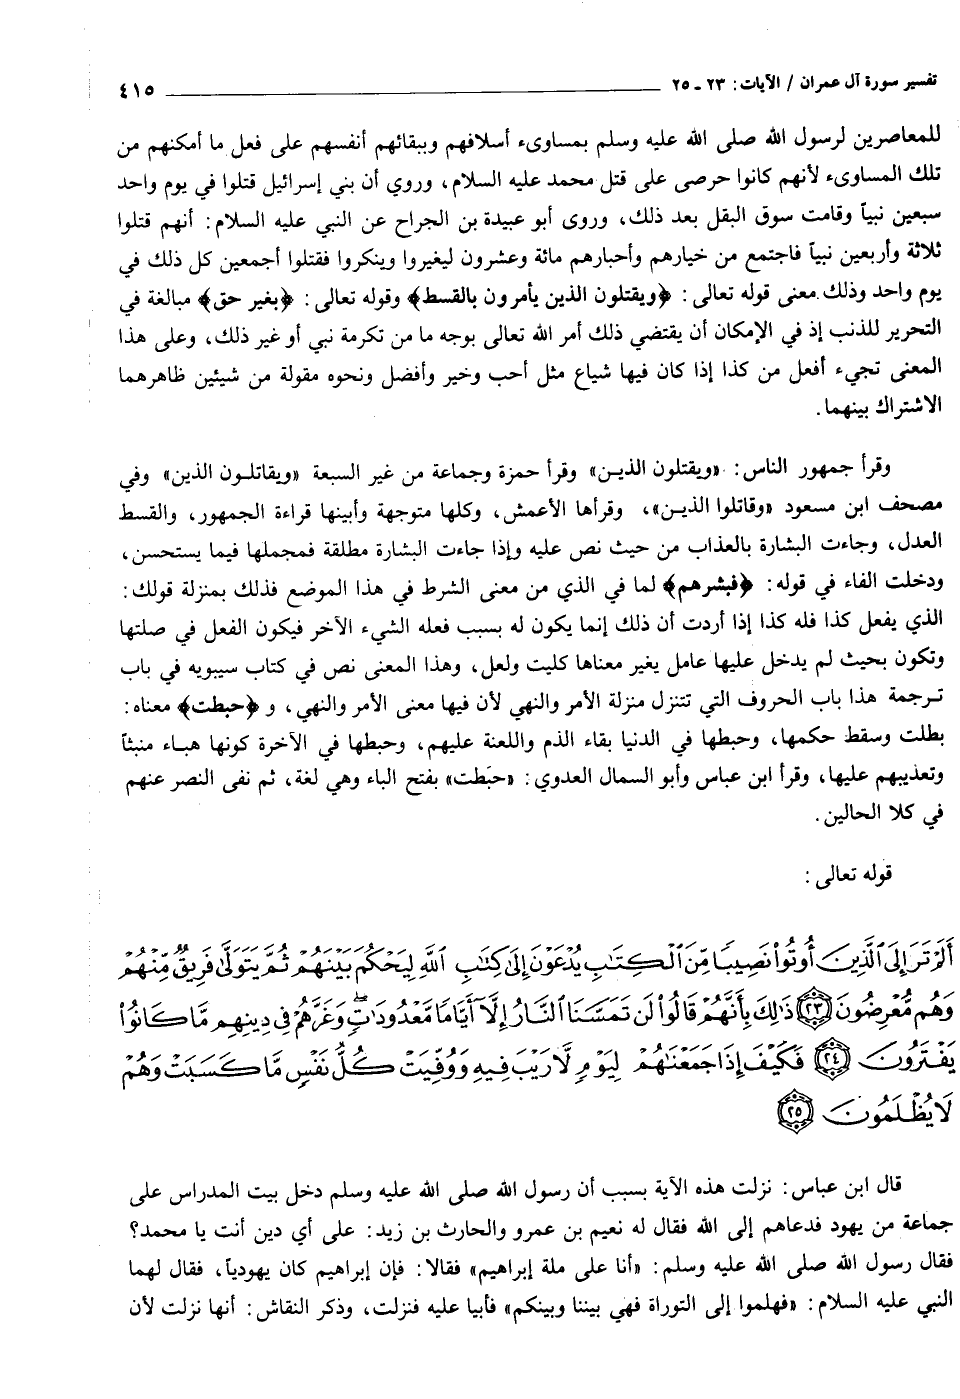 تفسير سورة آل عمران / الآيات: ٢٣ ـ ٢٥ ٤١٥
للمعاصرين لرسول الله صلى الله عليه وسلم بمساوىء أسلافهم وببقائهم أنفسهم على فعل ما أمكنهم من
تلك المساوىء لأنهم كانوا حرصى على قتل محمد عليه السلام، وروي أن بني إسرائيل قتلوا في يوم واحد
سبعين نبياً وقامت سوق البقل بعد ذلك، وروى أبو عبيدة بن الجراح عن النبي عليه السلام: أنهم قتلوا
ثلاثة وأربعين نبياً فاجتمع من خيارهم وأحبارهم مائة وعشرون ليغيروا وينكروا فقتلوا أجمعين كل ذلك في
يوم واحد وذلك معنى قوله تعالى: ﴿ويقتلون الذين يأمرون بالقسط﴾ وقوله تعالى: ﴿بغير حق﴾ مبالغة في
التحرير للذنب إذ في الإمكان أن يقتضي ذلك أمر الله تعالى بوجه ما من تكرمة نبي أو غير ذلك، وعلى هذا
المعنى تجيء أفعل من كذا إذا كان فيها شياع مثل أحب وخير وأفضل ونحوه مقولة من شيئين ظاهرهما
الاشتراك بينهما.
وقرأ جمهور الناس: «ويقتلون الذين» وقرأ حمزة وجماعة من غير السبعة «ويقاتلون الذين» وفي
مصحف ابن مسعود «وقاتلوا الذين»، وقرأها الأعمش، وكلها متوجهة وأبينها قراءة الجمهور، والقسط
العدل، وجاءت البشارة بالعذاب من حيث نص عليه وإذا جاءت البشارة مطلقة فمجملها فيما يستحسن،
ودخلت الفاء في قوله: ﴿فبشرهم﴾ لما في الذي من معنى الشرط في هذا الموضع فذلك بمنزلة قولك:
الذي يفعل كذا فله كذا إذا أردت أن ذلك إنما يكون له بسبب فعله الشيء الآخر فيكون الفعل في صلتها
وتكون بحيث لم يدخل عليها عامل يغير معناها كليت ولعل، وهذا المعنى نص في كتاب سيبويه في باب
ترجمة هذا باب الحروف التي تتنزل منزلة الأمر والنهي لأن فيها معنى الأمر والنهي، و ﴿حبطت﴾ معناه:
بطلت وسقط حكمها، وحبطها في الدنيا بقاء الذم واللعنة عليهم، وحبطها في الآخرة كونها هباء منبثاً
وتعذيبهم عليها، وقرأ ابن عباس وأبو السمال العدوي: «حبَطت» بفتح الباء وهي لغة، ثم نفى النصر عنهم
في كلا الحالين.
قوله تعالى:
أَلَمْ تَرَ إِلَى ٱلَّذِينَ أُوتُوا۟ نَصِيبًا مِّنَ ٱلْكِتَـٰبِ يُدْعَوْنَ إِلَىٰ كِتَـٰبِ ٱللَّهِ لِيَحْكُمَ بَيْنَهُمْ ثُمَّ يَتَوَلَّىٰ فَرِيقٌ مِّنْهُمْ
وَهُم مُّعْرِضُونَ ﴿٢٣﴾ ذَٰلِكَ بِأَنَّهُمْ قَالُوا۟ لَن تَمَسَّنَا ٱلنَّارُ إِلَّآ أَيَّامًا مَّعْدُودَٰتٍ ۖ وَغَرَّهُمْ فِى دِينِهِم مَّا كَانُوا۟
يَفْتَرُونَ ﴿٢٤﴾ فَكَيْفَ إِذَا جَمَعْنَـٰهُمْ لِيَوْمٍ لَّا رَيْبَ فِيهِ وَوُفِّيَتْ كُلُّ نَفْسٍ مَّا كَسَبَتْ وَهُمْ
لَا يُظْلَمُونَ ﴿٢٥﴾
قال ابن عباس: نزلت هذه الآية بسبب أن رسول الله صلى الله عليه وسلم دخل بيت المدراس على
جماعة من يهود فدعاهم إلى الله فقال له نعيم بن عمرو والحارث بن زيد: على أي دين أنت يا محمد؟
فقال رسول الله صلى الله عليه وسلم: «أنا على ملة إبراهيم» فقالا: فإن إبراهيم كان يهودياً، فقال لهما
النبي عليه السلام: «فهلموا إلى التوراة فهي بيننا وبينكم» فأبيا عليه فنزلت، وذكر النقاش: أنها نزلت لأن